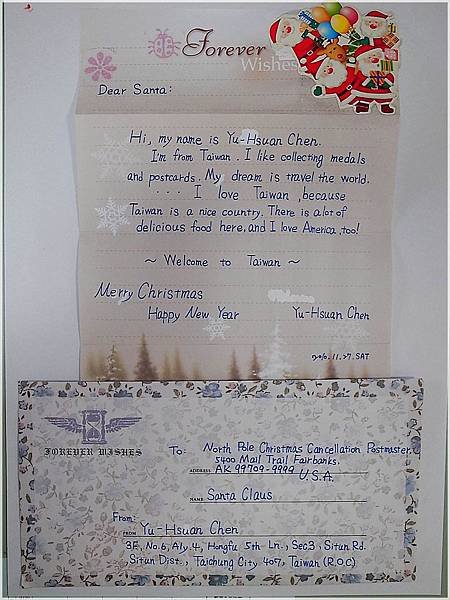 Forever
Wishes
Dear Santa:
Hi, my name is Yu-Hsuan Chen.
I'm from Taiwan. I like collecting medals
and postcards. My dream is travel the world.
··· I love Taiwan, because
Taiwan is a nice country. There is a lot of
delicious food here, and I love America, too!
~ Welcome to Taiwan ~
Merry Christmas
Happy New Year Yu-Hsuan Chen
2010.11.27.SAT
FOREVER WISHES
To: North Pole Christmas Cancellation Postmaster
5400 Mail Trail Fairbanks.
ADDRESS AK 99709-9999
U.S.A.
NAME Santa Claus
From:
FROM Yu-Hsuan Chen
3F., No.6, Aly.4, Hongfu 5th Ln., Sec3, Situn Rd.
Situn Dist., Taichung City 407, Taiwan (R.O.C)